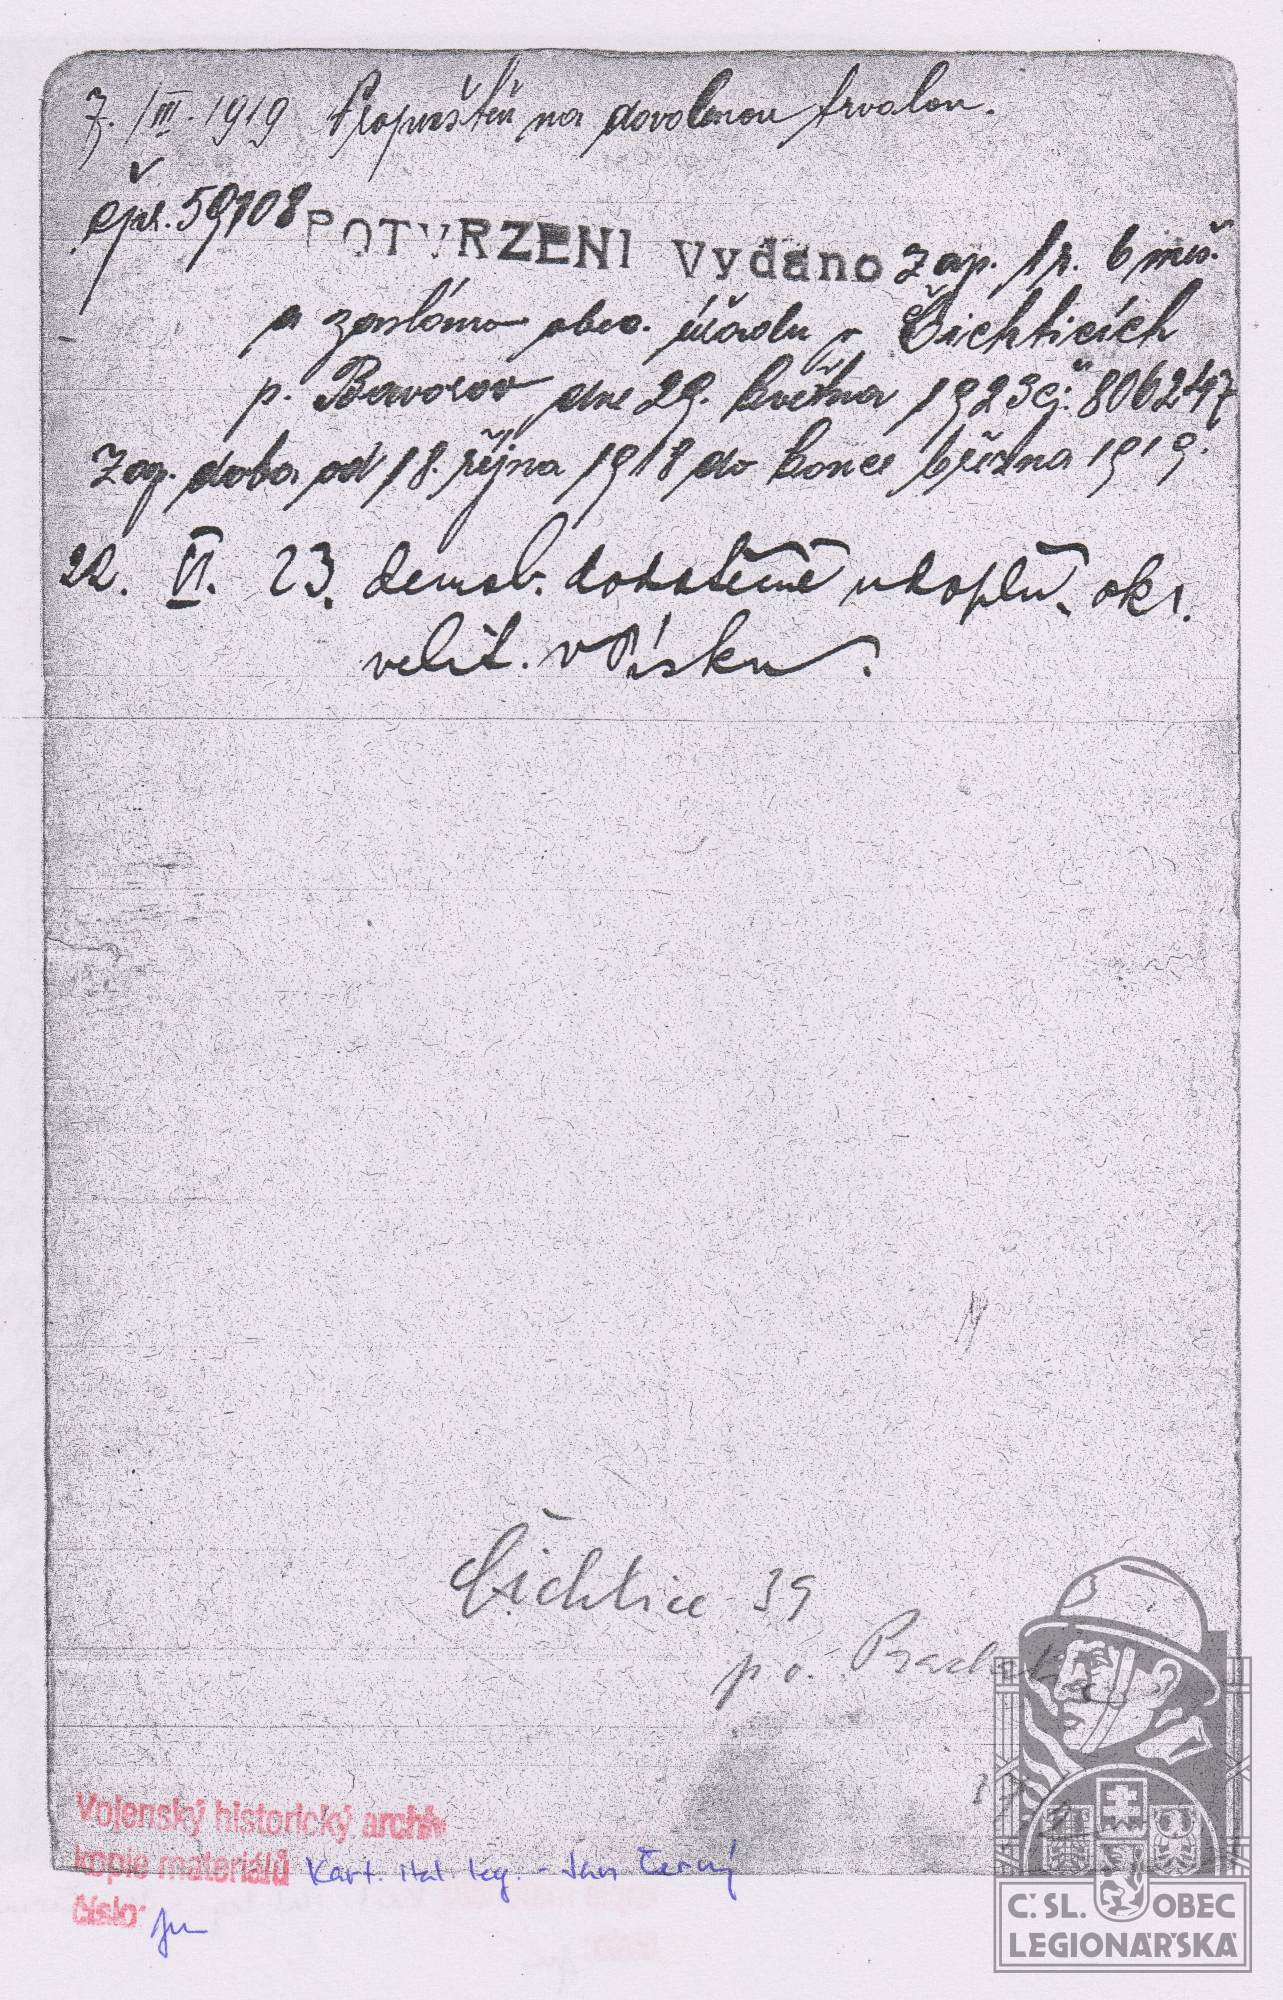 7./III. 1919 Propuštěn na dovolenou trvalou.
čjd. 59108 POTVRZENI Vydáno zap. 1 r. 6 měs.
a zasláno obec. úřadu v Čichticích
p. Bavorov dne 29. května 1923 čj. 806247
Zap. doba od 18. října 1918 do konce března 1919.
22. VI. 23. demob. dodatečně u doplň. okr.
velit. v Písku.
Čichtice 39
p o. Prachatic
Vojenský historický archiv
kopie materiálů Kart. ital. leg. - Jan Černý
číslo:
Č. SL. OBEC
LEGIONÁŘSKÁ